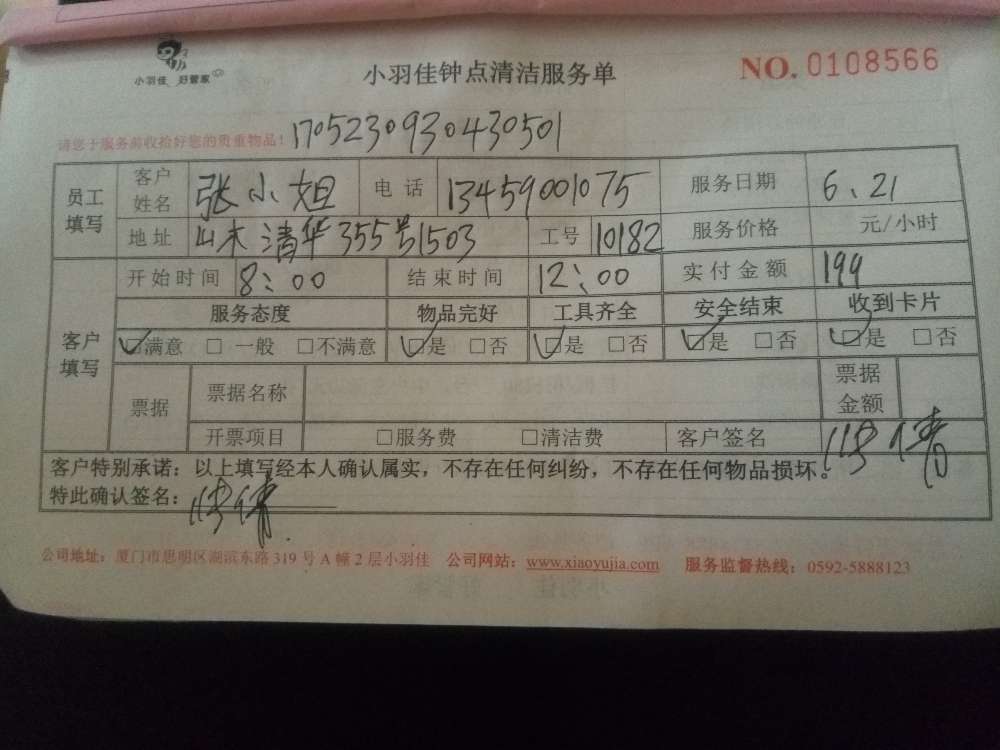 小羽佳 好管家
小羽佳钟点清洁服务单
NO. 0108566
请您于服务前收拾好您的贵重物品! 1705230930430501
员工填写 客户姓名 张小姐 电话 13459001075 服务日期 6、21
地址 山木清华355号1503 工号 10182 服务价格 元/小时
客户填写 开始时间 8:00 结束时间 12:00 实付金额 199
服务态度 物品完好 工具齐全 安全结束 收到卡片
☑满意 □一般 □不满意 ☑是 □否 ☑是 □否 ☑是 □否 ☑是 □否
票据 票据名称 票据金额
开票项目 □服务费 □清洁费 客户签名
客户特别承诺:以上填写经本人确认属实,不存在任何纠纷,不存在任何物品损坏!
特此确认签名:
公司地址:厦门市思明区湖滨东路319号A幢2层小羽佳 公司网站:www.xiaoyujia.com 服务监督热线:0592-5888123